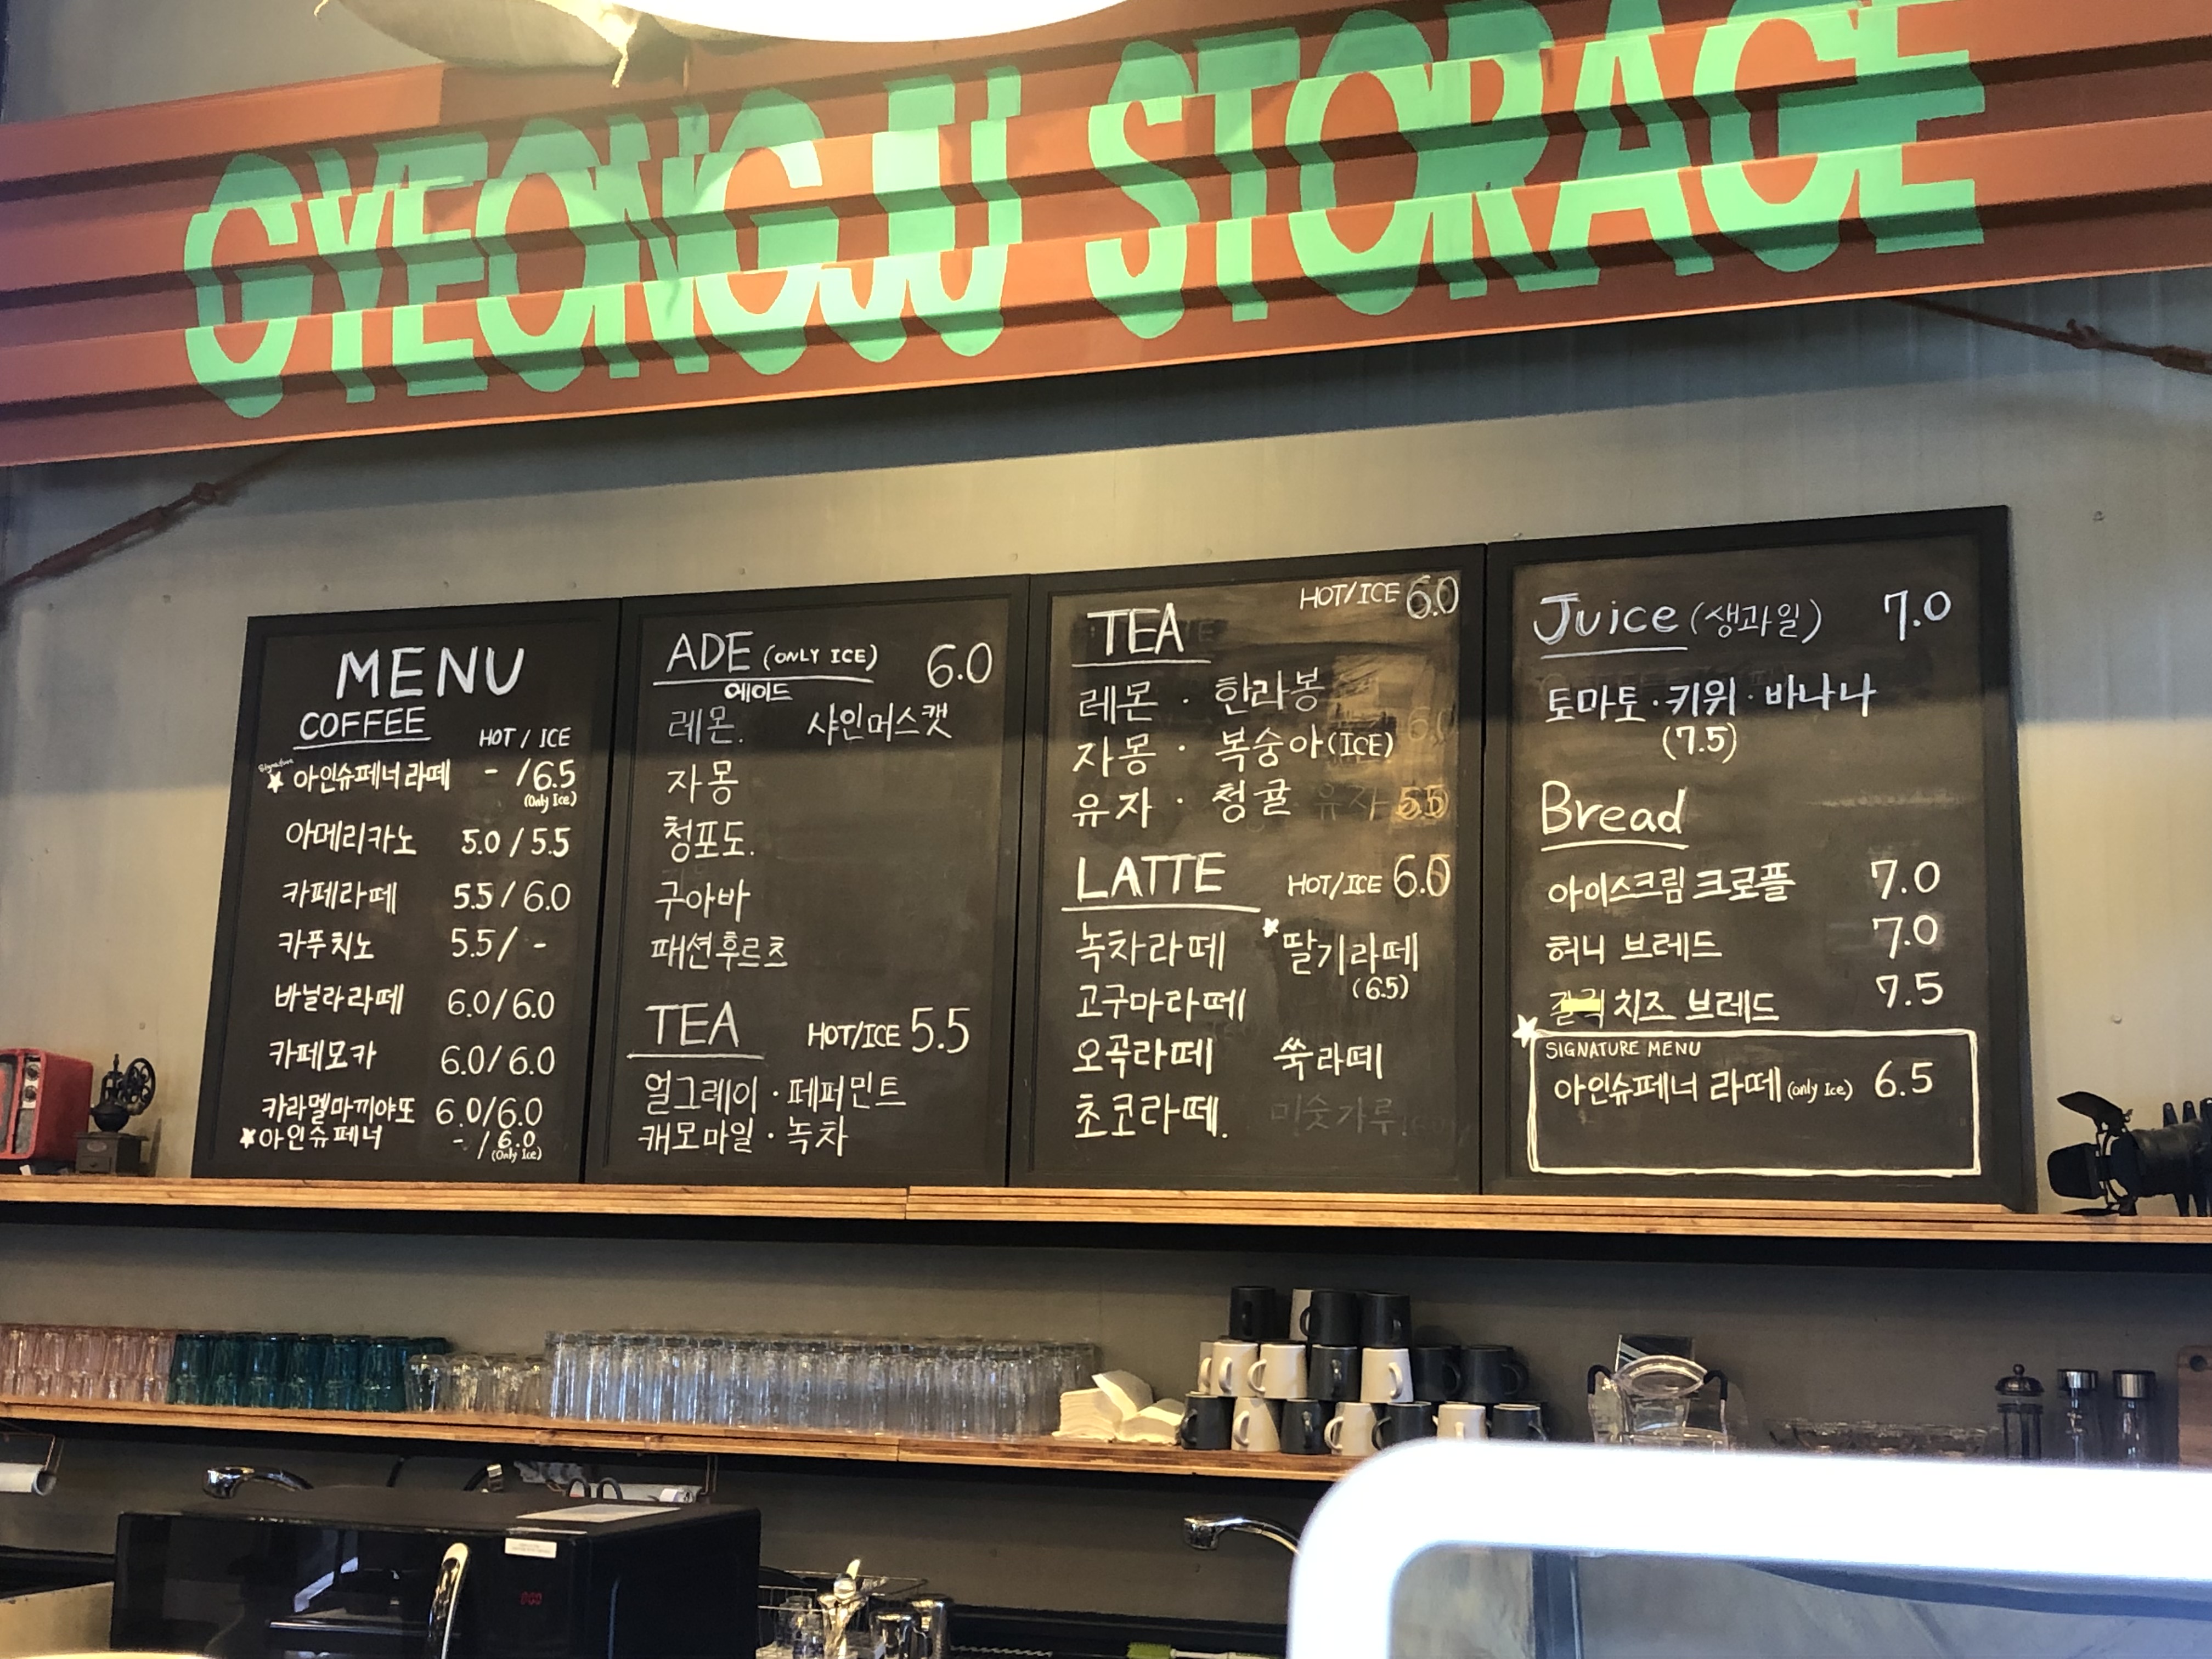 GYEONGJU STORAGE
MENU
COFFEE
HOT / ICE
Signature
아인슈페너라떼 - /6.5
(Only Ice)
아메리카노 5.0 / 5.5
카페라떼 5.5 / 6.0
카푸치노 5.5 / -
바닐라라떼 6.0/6.0
카페모카 6.0/6.0
카라멜마끼야또 6.0/6.0
아인슈페너 - / 6.0
(Only Ice)
ADE (ONLY ICE) 6.0
에이드
레몬. 샤인머스캣
자몽
청포도.
구아바
패션후르츠
TEA HOT/ICE 5.5
얼그레이 · 페퍼민트
캐모마일 · 녹차
TEA HOT/ICE 6.0
레몬 · 한라봉
자몽 · 복숭아(ICE)
유자 · 청귤
LATTE HOT/ICE 6.0
녹차라떼 딸기라떼
(6.5)
고구마라떼
오곡라떼 쑥라떼
초코라떼. 미숫가루
Juice (생과일) 7.0
토마토 · 키위 · 바나나
(7.5)
Bread
아이스크림 크로플 7.0
허니 브레드 7.0
치즈 브레드 7.5
SIGNATURE MENU
아인슈페너 라떼 (only Ice) 6.5